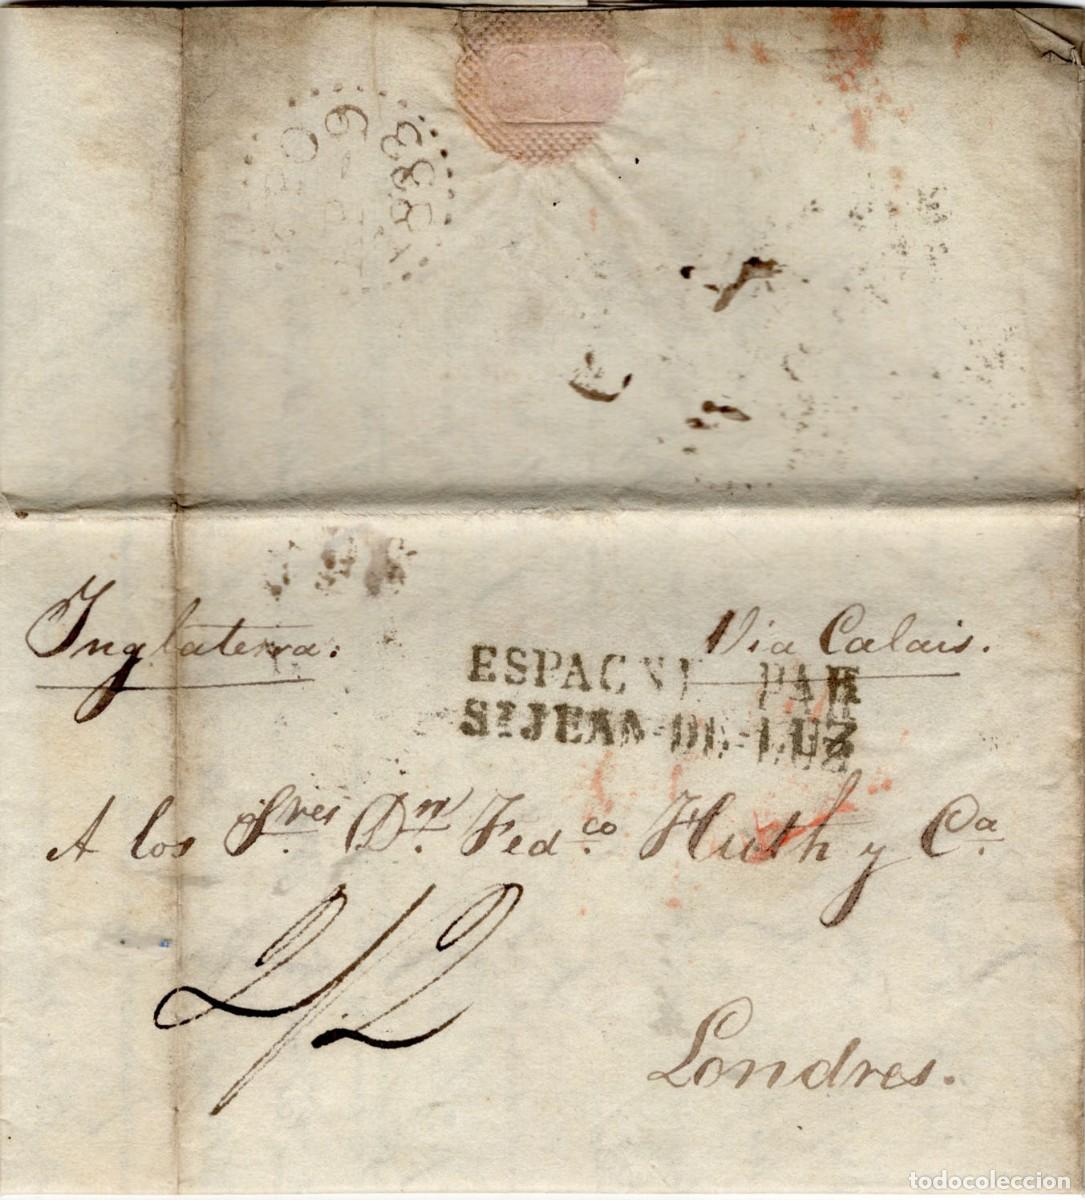 1833
Inglaterra.
Via Calais.
ESPAGNE PAR
St JEAN-DE-LUZ
A los Sres. Dn. Fedco. Huth y Ca.
2/2
Londres.
todocoleccion